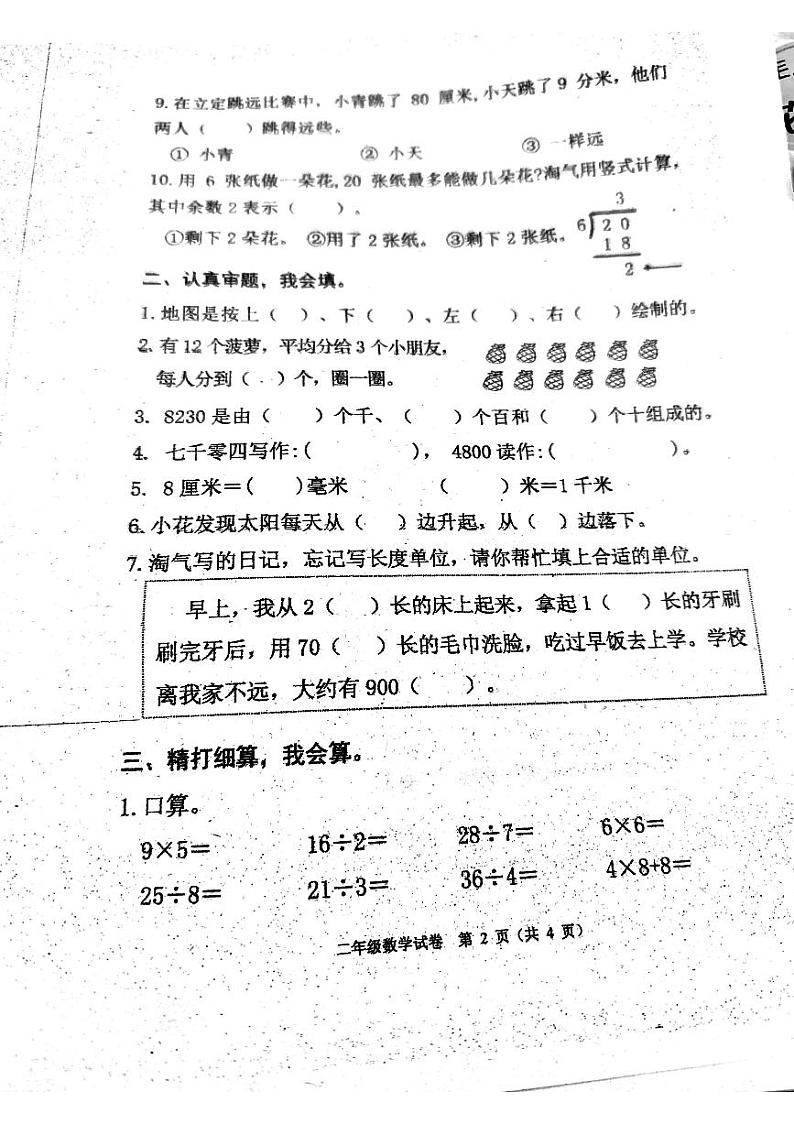 9.在立定跳远比赛中，小青跳了 80 厘米,小天跳了 9 分米，他们
两人（ ）跳得远些。
① 小青 ② 小天 ③ 一样远
10.用 6 张纸做一朵花,20 张纸最多能做几朵花?淘气用竖式计算，
其中余数2表示（ ）。
①剩下2朵花。 ②用了2张纸。 ③剩下2张纸。
3
6 2 0
1 8
2
二、认真审题，我会填。
1.地图是按上（ ）、下（ ）、左（ ）、右（ ）绘制的。
2.有12个菠萝，平均分给3个小朋友，
每人分到（ ）个，圈一圈。
3. 8230是由（ ）个千、（ ）个百和（ ）个十组成的。
4. 七千零四写作:( )， 4800读作:( )。
5. 8厘米=( )毫米 （ ）米=1千米
6.小花发现太阳每天从（ ）边升起，从（ ）边落下。
7.淘气写的日记，忘记写长度单位，请你帮忙填上合适的单位。
早上，我从2（ ）长的床上起来，拿起1（ ）长的牙刷
刷完牙后，用70（ ）长的毛巾洗脸，吃过早饭去上学。学校
离我家不远，大约有900（ ）。
三、精打细算，我会算。
1.口算。
9×5= 16÷2= 28÷7= 6×6=
25÷8= 21÷3= 36÷4= 4×8+8=
二年级数学试卷 第 2 页（共 4 页）